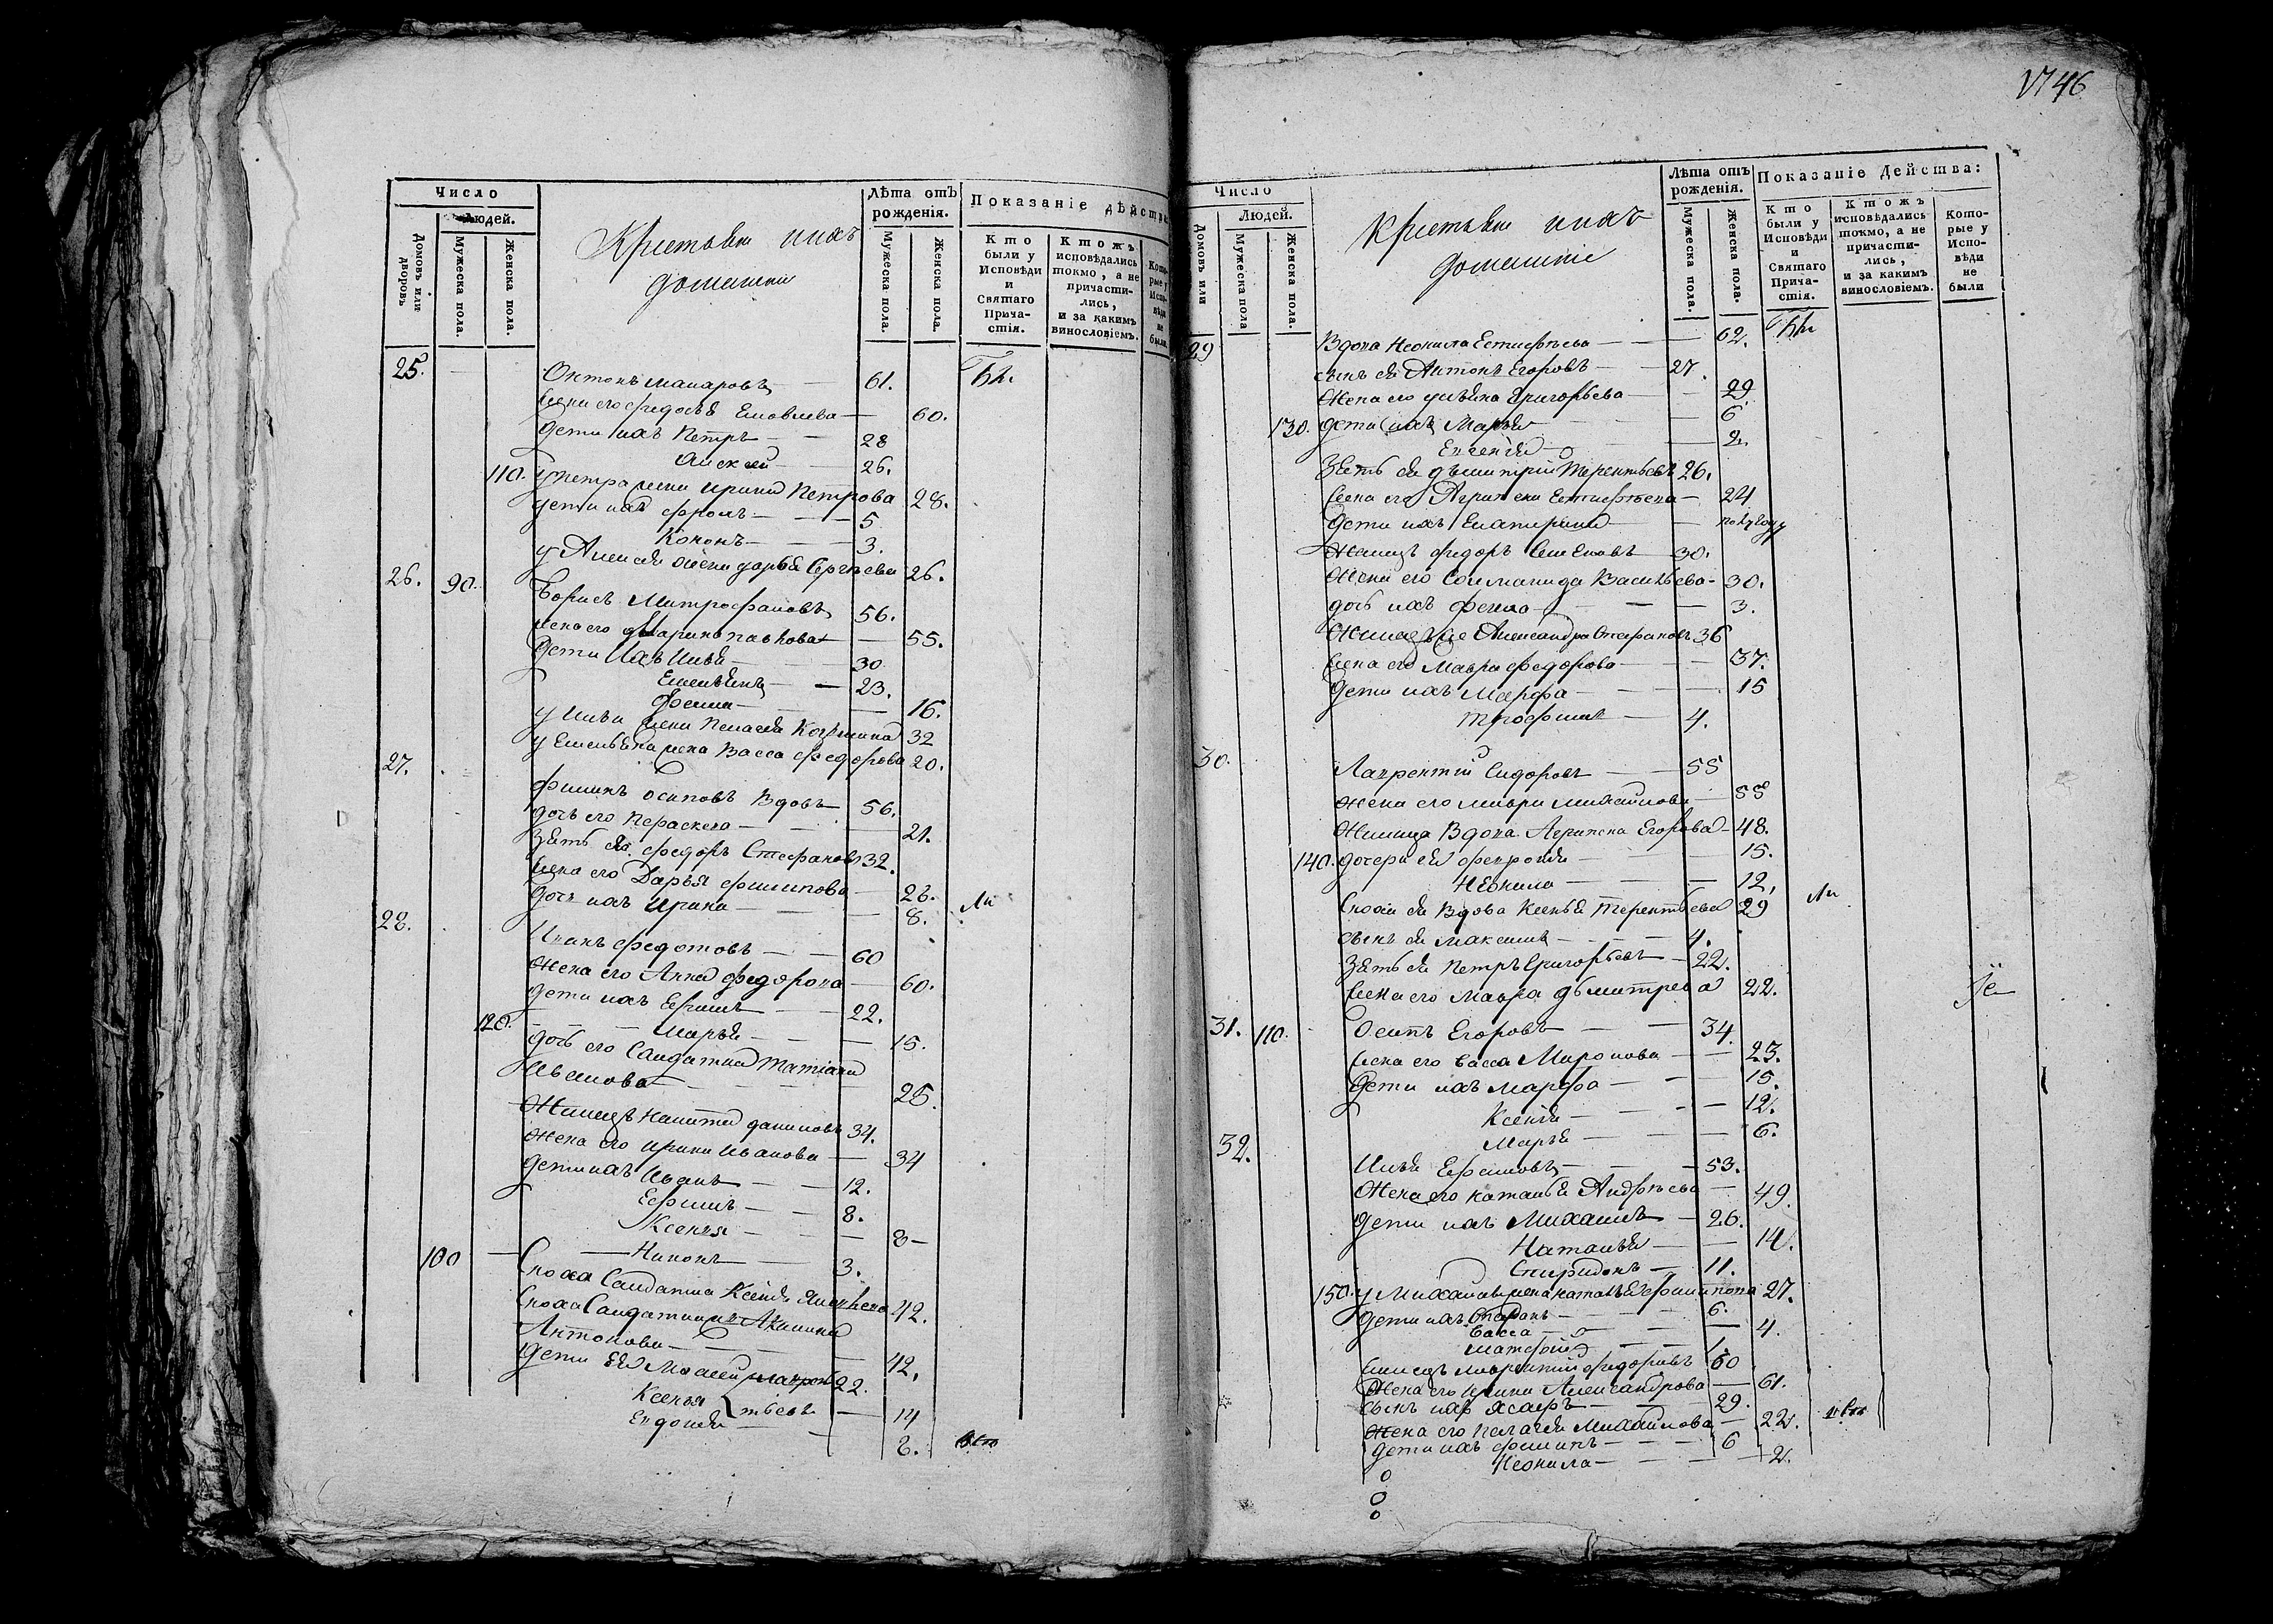 Число
Людей.
Домовъ или дворовъ
Мужеска пола.
Женска пола.
Лѣта отъ рожденія.
Мужеска пола.
Женска пола.
Показаніе дѣйства
Кто были у Исповѣди и Святаго Прича-стія.
Ктожъ исповѣдались токмо, а не причасти-лись, и за какимъ винословіемъ.
Кото-рые у Испо-вѣди не были.
домашніе
25. Антонъ Макаровъ 61.
жена его Федосья Яковлева 60.
дети ихъ Петръ 28
Алексей 26.
110. у Петра жена Ирина Петрова 28.
дети ихъ Фролъ 5
Кононъ 3.
у Алексея жена Дарья Сергѣева 26.
26. 90. Борисъ Митрофановъ 56.
жена его Марина Павлова 55.
Дети ихъ Илья 30
Емельянъ 23.
Фекла 16.
у Ильи жена Пелагея 32
у Емельяна жена Васса Федорова 20.
27. Филипъ Осиповъ Вдовъ 56.
дочь его Параскева 21.
Зять ея Федоръ Стефановъ 32.
жена его Дарья Филипова 26.
дочь ихъ Ирина 8.
28. Иванъ Федотовъ 60
Жена его Анна Федорова 60.
дети ихъ Ефимъ 22.
120. Марья 15.
дочь его Салдатка Татіана
Иванова 25.
Жилецъ Никита Даниловъ 34.
Жена его Ирина Иванова 34
дети ихъ Иванъ 12.
Ефимъ 8.
Ксенья 8
100 Никонъ 3.
Сноха Салдатка Ксенья 42.
Сноха Салдатка Акилина
Антонова 42.
дети ея Моисей 22.
Ксенья 14
Евдокея 8.
146
Число
Людей.
Домовъ или
Мужеска пола
Женска пола.
Лѣта отъ рожденія.
Мужеска пола.
Женска пола.
Показаніе Действа:
Кто были у Исповѣди и Святаго Прича-стія.
Ктожъ исповѣдались токмо, а не причасти-лись, и за какимъ винословіемъ.
Кото-рые у Испо-вѣди не были
домашніе
29 Вдова Неонила Естифѣева 62.
сынъ ея Антонъ Егоровъ 27.
Жена его Ульяна Григорьева 29.
130. дети ихъ Марья 6
Евгенья 2.
Зять ея Дьмитрій Терентьевъ 26.
жена его Агрипена Естифѣева 24
дети ихъ Екатирина полугоду
Жилецъ Федоръ 30.
Жена его Соломанида Васильева 30.
дочь ихъ Фекла 3.
Жилецъ же Александра Стефановъ 36
жена его Мавра Федорова 37.
дети ихъ Марфа 15
Трофимъ 4.
30. Лаврентій Сидоровъ 55
жена его Мавра Михайлова 58
Жилица Вдова Агрипена Егорова 48.
140. дочери ея Февронья 15.
Неонила 12.
Сноха ея Вдова Ксенья Терентьева 29
сынъ ея Максимъ 4.
Зять ея Петръ Григорьевъ 22.
жена его Мавра Дьмитрева 22.
31. 110. Осипъ Егоровъ 34.
жена его Васса Миронова 23.
дети ихъ Марфа 15.
Ксенья 12.
Марья 6.
32. Илья Ефимовъ 53.
Жена его Наталья Андрѣева 49.
дети ихъ Михаилъ 26.
Наталья 14.
Спиридонъ 11.
150. у Михаила жена Наталья 27.
дети ихъ 6.
Васса 4.
Матфей 1.
Жилецъ Лаврентій Федоровъ 60
Жена его Ирина Александрова 61.
сынъ ихъ 29.
Жена его Пелагея Михайлова 22.
дети ихъ Филипъ 6
Неонила 2.